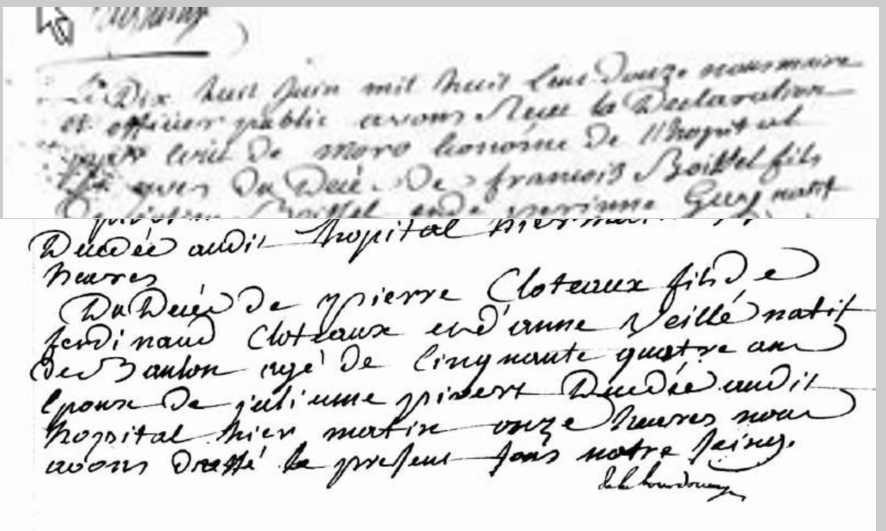 Le Dix huit juin mil huit Cent Douze nous maire
et officier public avons Reçu la Declaration
de moro Econome de l'hopital
st yves Du Décé De francois Boissel fils
Boissel et de perinne Guy natif
Decedée audit hopital hier
heures
Du Décée De pierre Cloteaux fils De
ferdinand Cloteaux et d'anne Veillé natif
De Baulon agé de Cinquante quatre an
Epoux De julienne pivert Decedée audit
hopital hier matin onze heures nous
avons Dressé le present sous notre seing.